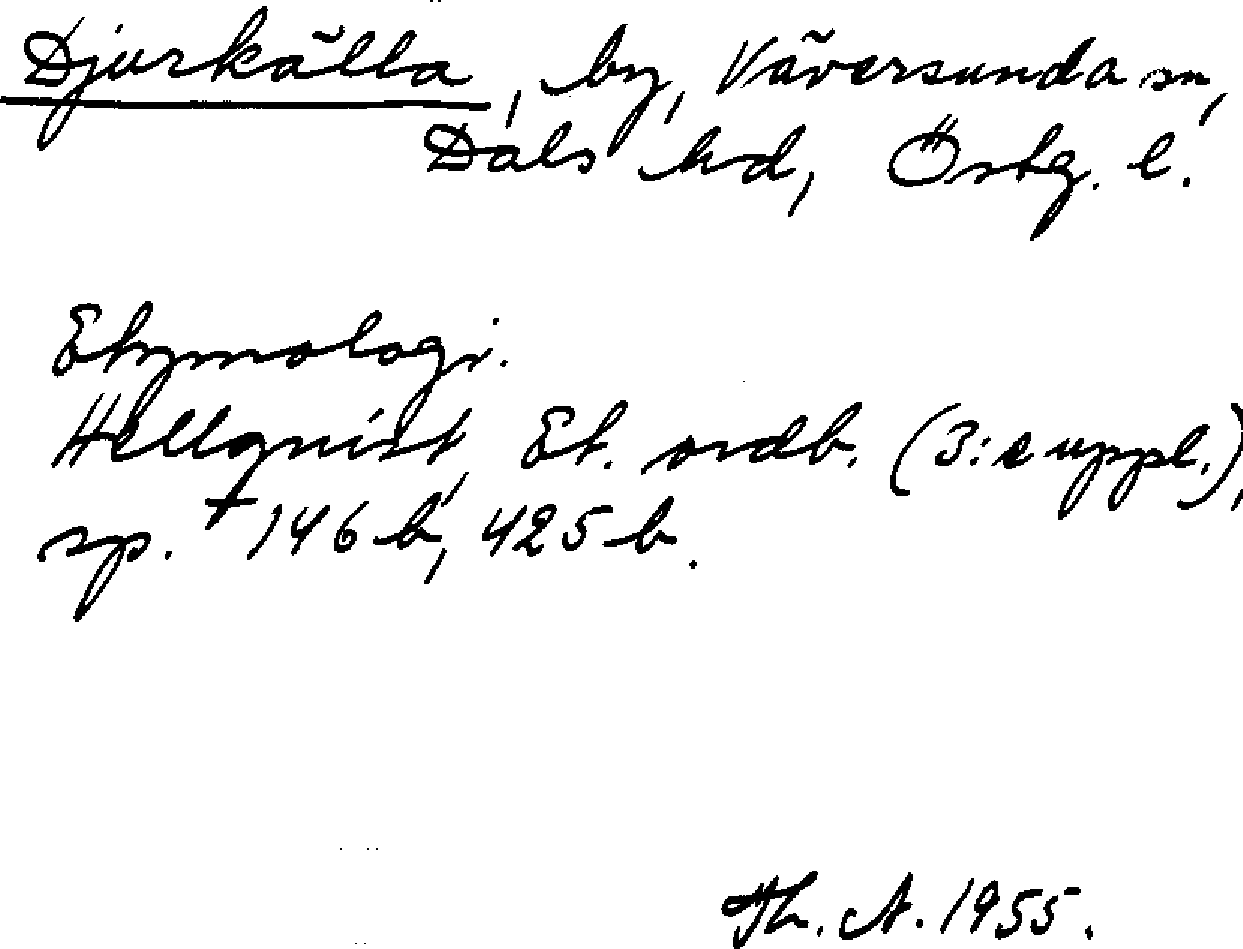 Djurkälla, by, Väversunda sn,
Dals hd, Östg. l.
Etymologi.
Hellquist, Et. ordb. (3:e uppl.),
sp. † 146 b, 425 b.
Th. A. 1955.